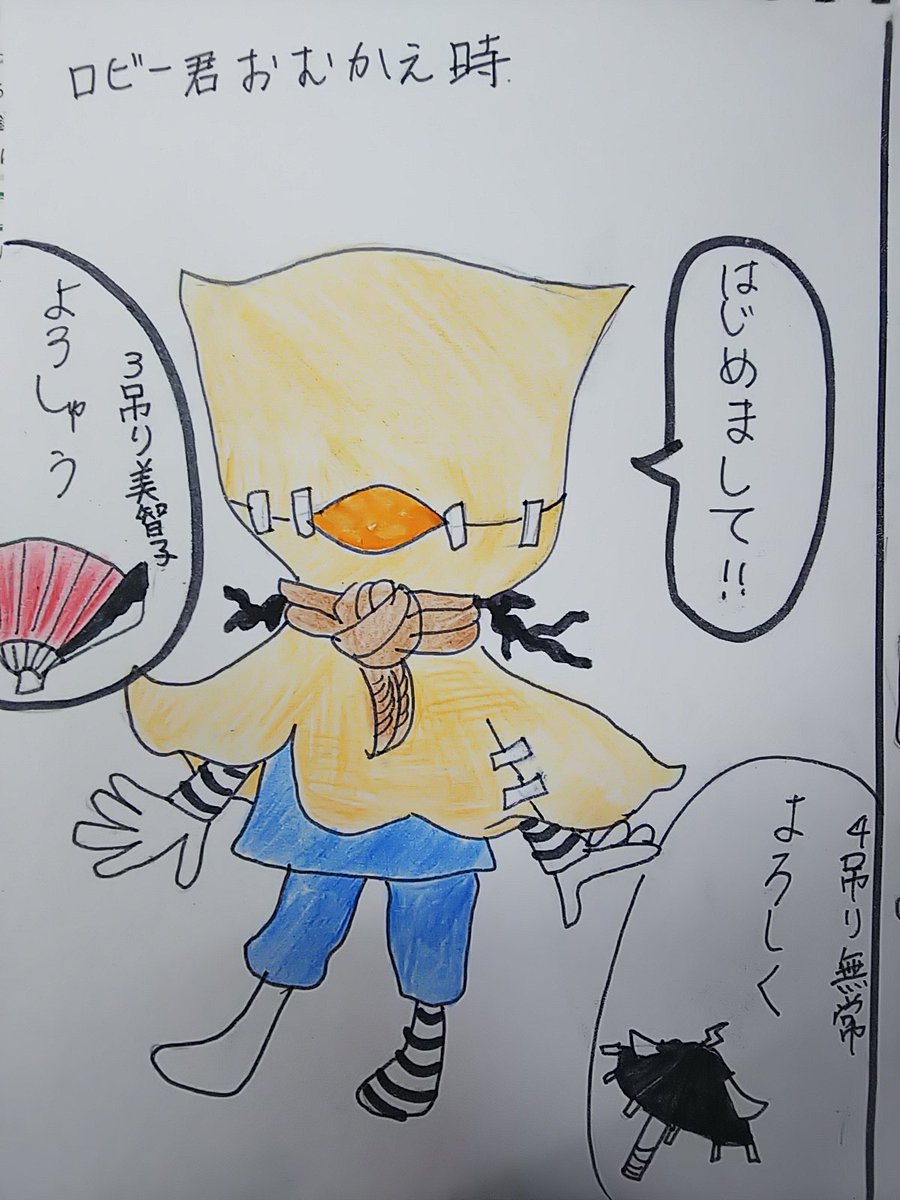 ロビー君おむかえ時.
はじめまして!!
3吊り美智子
よろしゅう
4吊り無常
よろしく